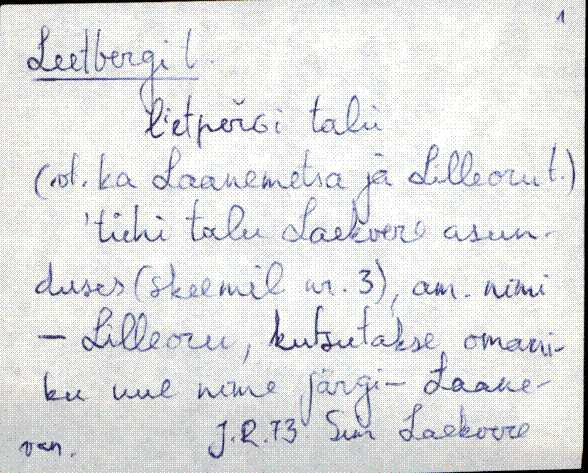 1
Leetbergi t.
lietperGi talu
(vt. ka Laanemetsa ja Lilleoru t.)
'tiihi talu Laekvere asun-
duses (skeemil nr. 3), am. nimi
– Lilleoru, kutsutakse omani-
ku uue nime järgi – Laane-
J.R.73 Sim Laekvere